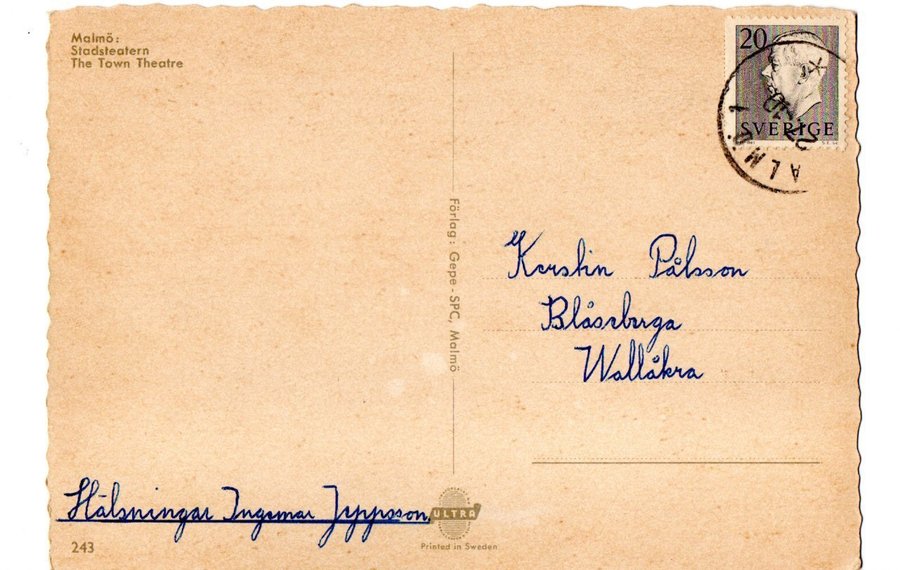 Malmö:
Stadsteatern
The Town Theatre
20
SVERIGE
MALMÖ 1
Förlag: Gepe - SPC, Malmö
Kerstin Pålsson
Blåseberga
Wallåkra
Hälsningar Ingemar Jeppsson
ULTRA
243
Printed in Sweden